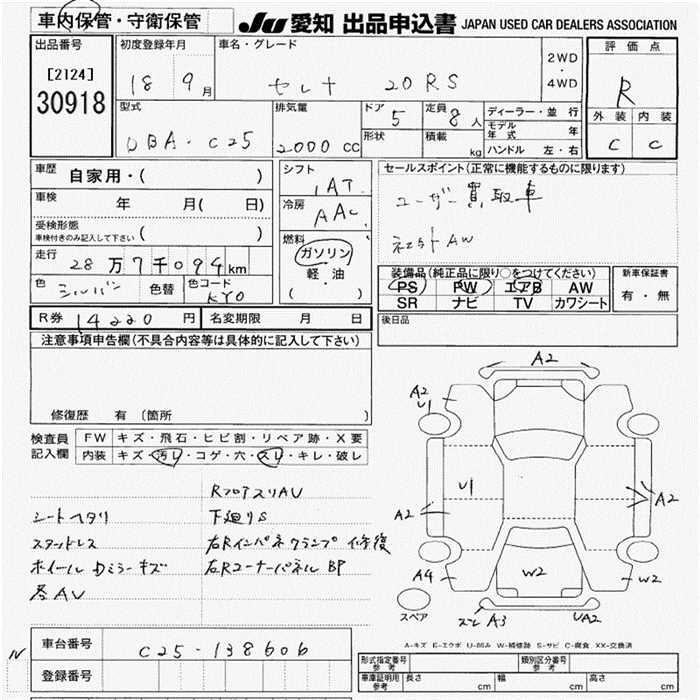 車内保管・守衛保管
JU 愛知 出品申込書 JAPAN USED CAR DEALERS ASSOCIATION
出品番号
[2124]
30918
初度登録年月
18 9月
車名・グレード
セレナ 20RS
2WD
・
4WD
評価点
R
外装 内装
C C
型式
DBA・C25
排気量
2000 CC
ドア
5
形状
定員
8人
積載
kg
ディーラー・並行
モデル年式 年
ハンドル 左・右
車歴 自家用・( )
車検 年 月( 日)
受検形態
車検付きのみ記入して下さい ( )
走行
28万7千094km
色
シルバー
色替
色コード
KY0
シフト
IAT
冷房
AAC
燃料
ガソリン
軽・油
( )
セールスポイント(正常に機能するものに限ります)
ユーザー買取車
社外AW
装備品(純正品に限り○をつけてください)
PS PW エアB AW
SR ナビ TV カワシート
新車保証書
有・無
R券 14220円
名変期限 月 日
後日品
注意事項申告欄(不具合内容等は具体的に記入して下さい)
修復歴 有(箇所 )
検査員
記入欄
FW キズ・飛石・ヒビ割・リペア跡・X要
内装 キズ・汚レ・コゲ・穴・スレ・キレ・破レ
RフロアスリAU
シートヘタリ 下廻りS
スタッドレス 右Rインパネクランプ修復
ホイール Dミラーキズ 右Rコーナーパネル BP
巻AU
A2
A2
U1
U1
A2
A2
A4
W2
W2
スレ A3
UA2
スペア
A-キズ E-エクボ U-凹み W-補修跡 S-サビ C-腐食 XX-交換済
車台番号
C25-138606
登録番号
N
形式指定番号 参考
類別区分番号 参考
車庫証明用 参考
長さ cm
幅 cm
高さ cm